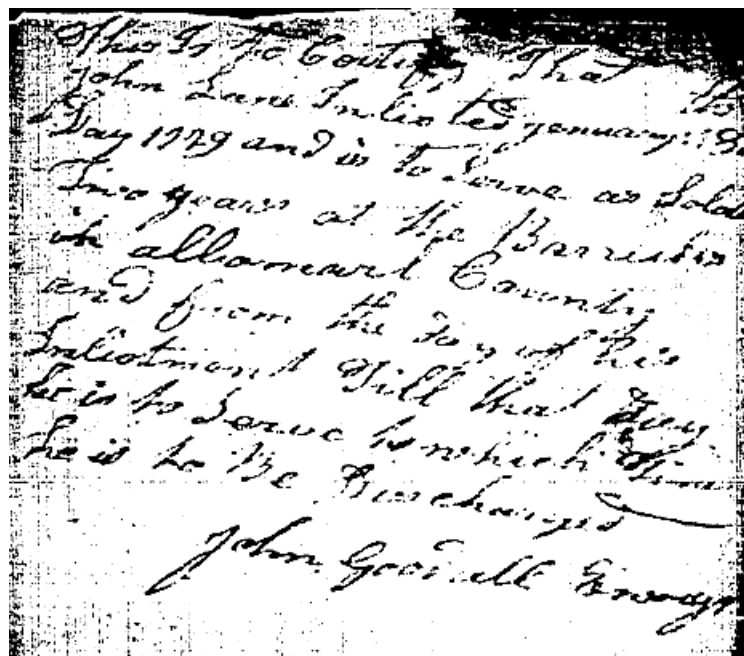 This Is To Certify That the
John Lane Inlisted Jenuary
Day 1779 and is to Serve as Sold
Two years at the Barricks
in allbomarl County
and from the Day of his
Inlistment Till that Day
he is to Serve to which Time
he is to Be Discharged
John Goodall Ensign